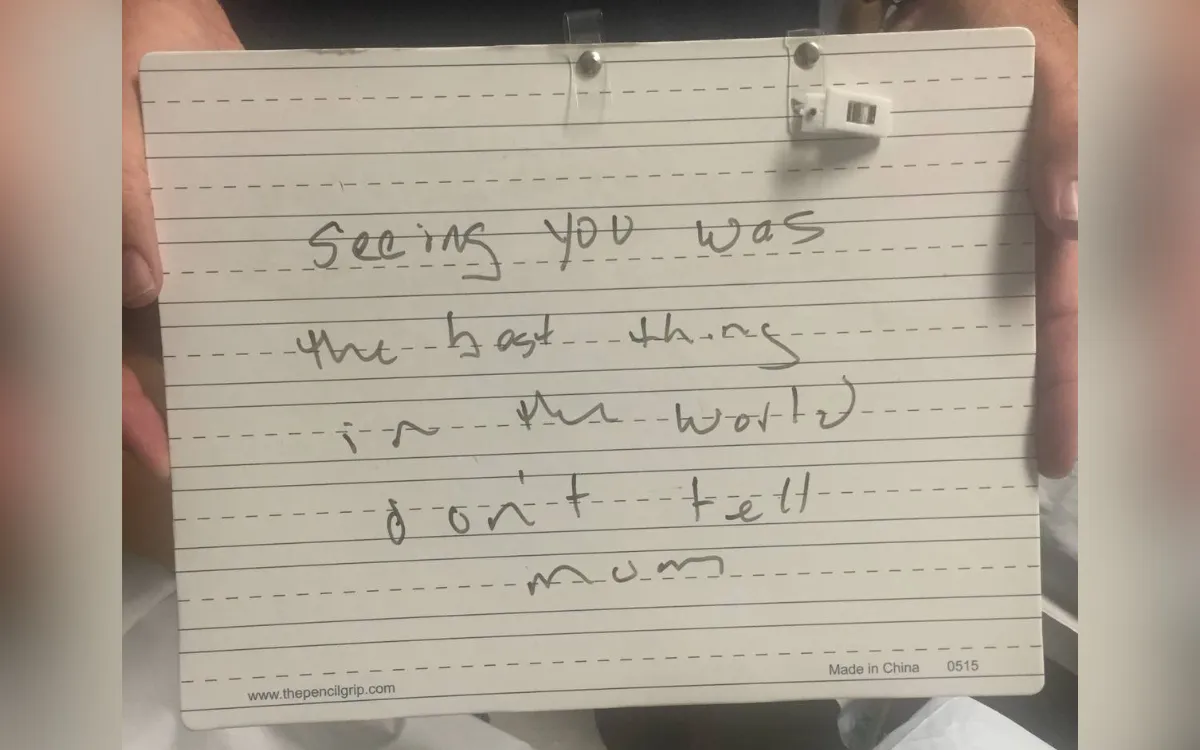 seeing you was
the best thing
in the world
don't tell
mum
www.thepencilgrip.com
Made in China 0515